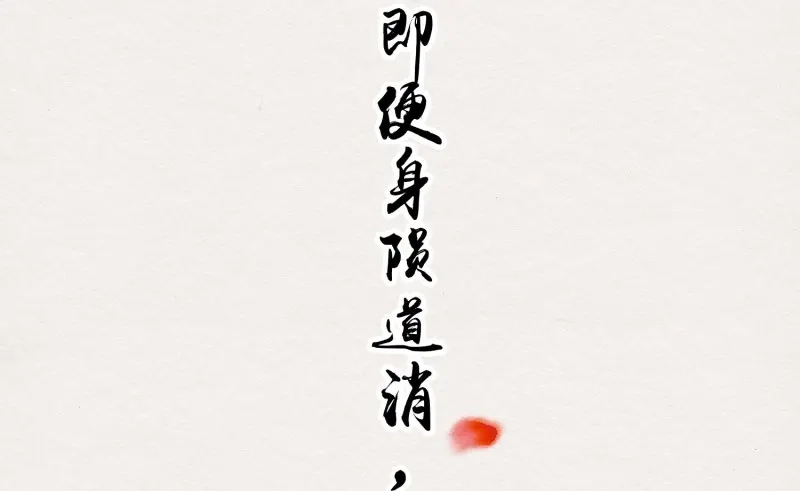 即便身陨道消，